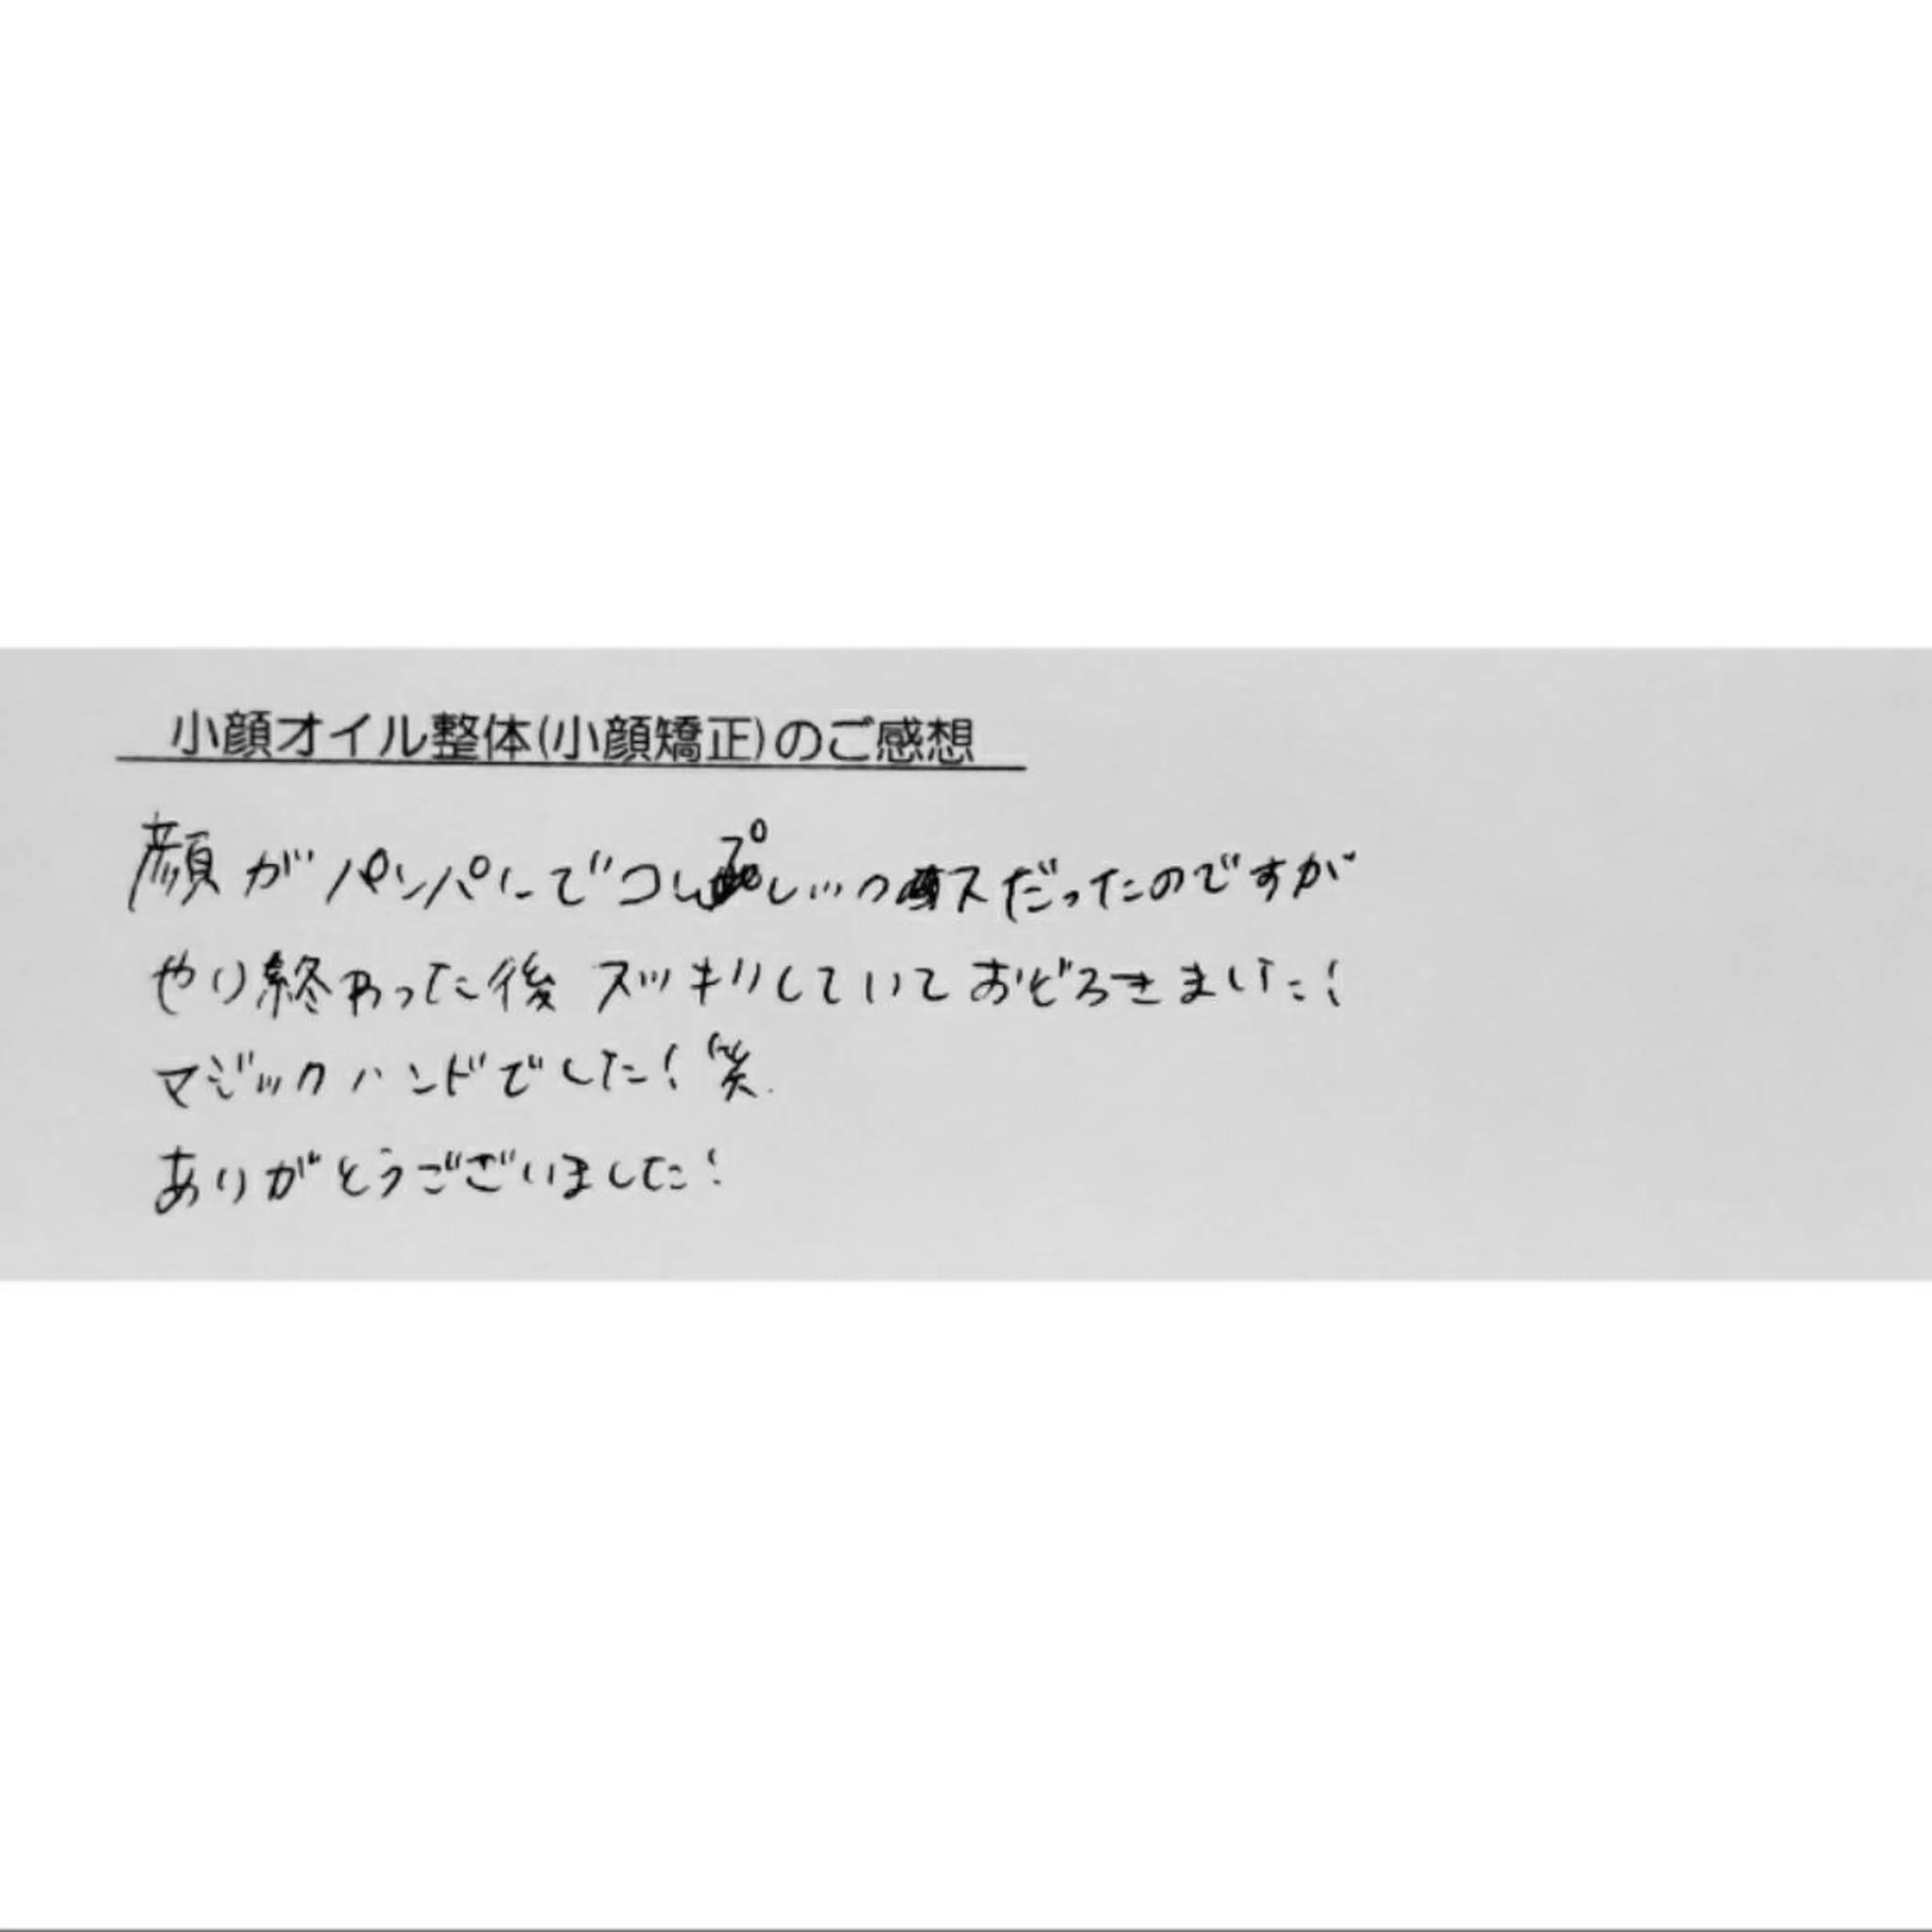 小顔オイル整体(小顔矯正)のご感想
顔がパンパンでコンプレックスだったのですが
やり終わった後 スッキリしていておどろきました!
マジックハンドでした!笑.
ありがとうございました!